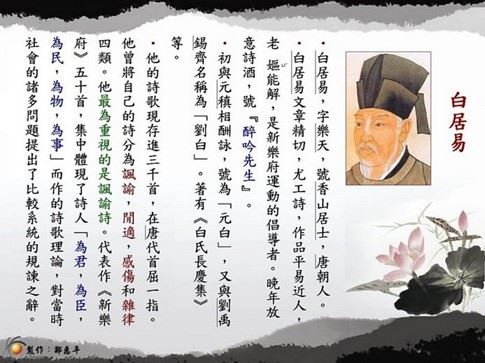 白居易
・白居易，字樂天，號香山居士，唐朝人。
・白居易文章精切，尤工詩，作品平易近人，
老嫗能解，是新樂府運動的倡導者。晚年放
意詩酒，號『醉吟先生』。
・初與元稹相酬詠，號為「元白」，又與劉禹
錫齊名稱為「劉白」。著有《白氏長慶集》
等。
・他的詩歌現存進三千首，在唐代首屈一指。
他曾將自己的詩分為諷諭，閒適，感傷和雜律
四類。他最為重視的是諷諭詩。代表作《新樂
府》五十首，集中體現了詩人「為君，為臣，
為民，為物，為事」而作的詩歌理論，對當時
社會的諸多問題提出了比較系統的規諫之辭。
製作：